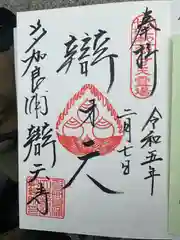 奉拝
令和五年
二月七日
辯才天
多加良浦辯天寺